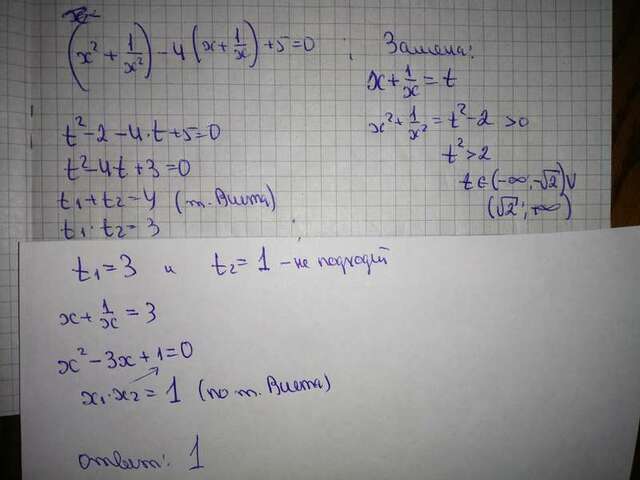 (x² + 1/x²) - 4(x + 1/x) + 5 = 0 ; Замена:
x + 1/x = t
x² + 1/x² = t² - 2 > 0
t² > 2
t ∈ (-∞; -√2) ∪
(√2; +∞)
t² - 2 - 4·t + 5 = 0
t² - 4t + 3 = 0
t₁ + t₂ = 4 (т. Виета)
t₁ · t₂ = 3
t₁ = 3 и t₂ = 1 - не подходит
x + 1/x = 3
x² - 3x + 1 = 0
x₁ · x₂ = 1 (по т. Виета)
ответ: 1